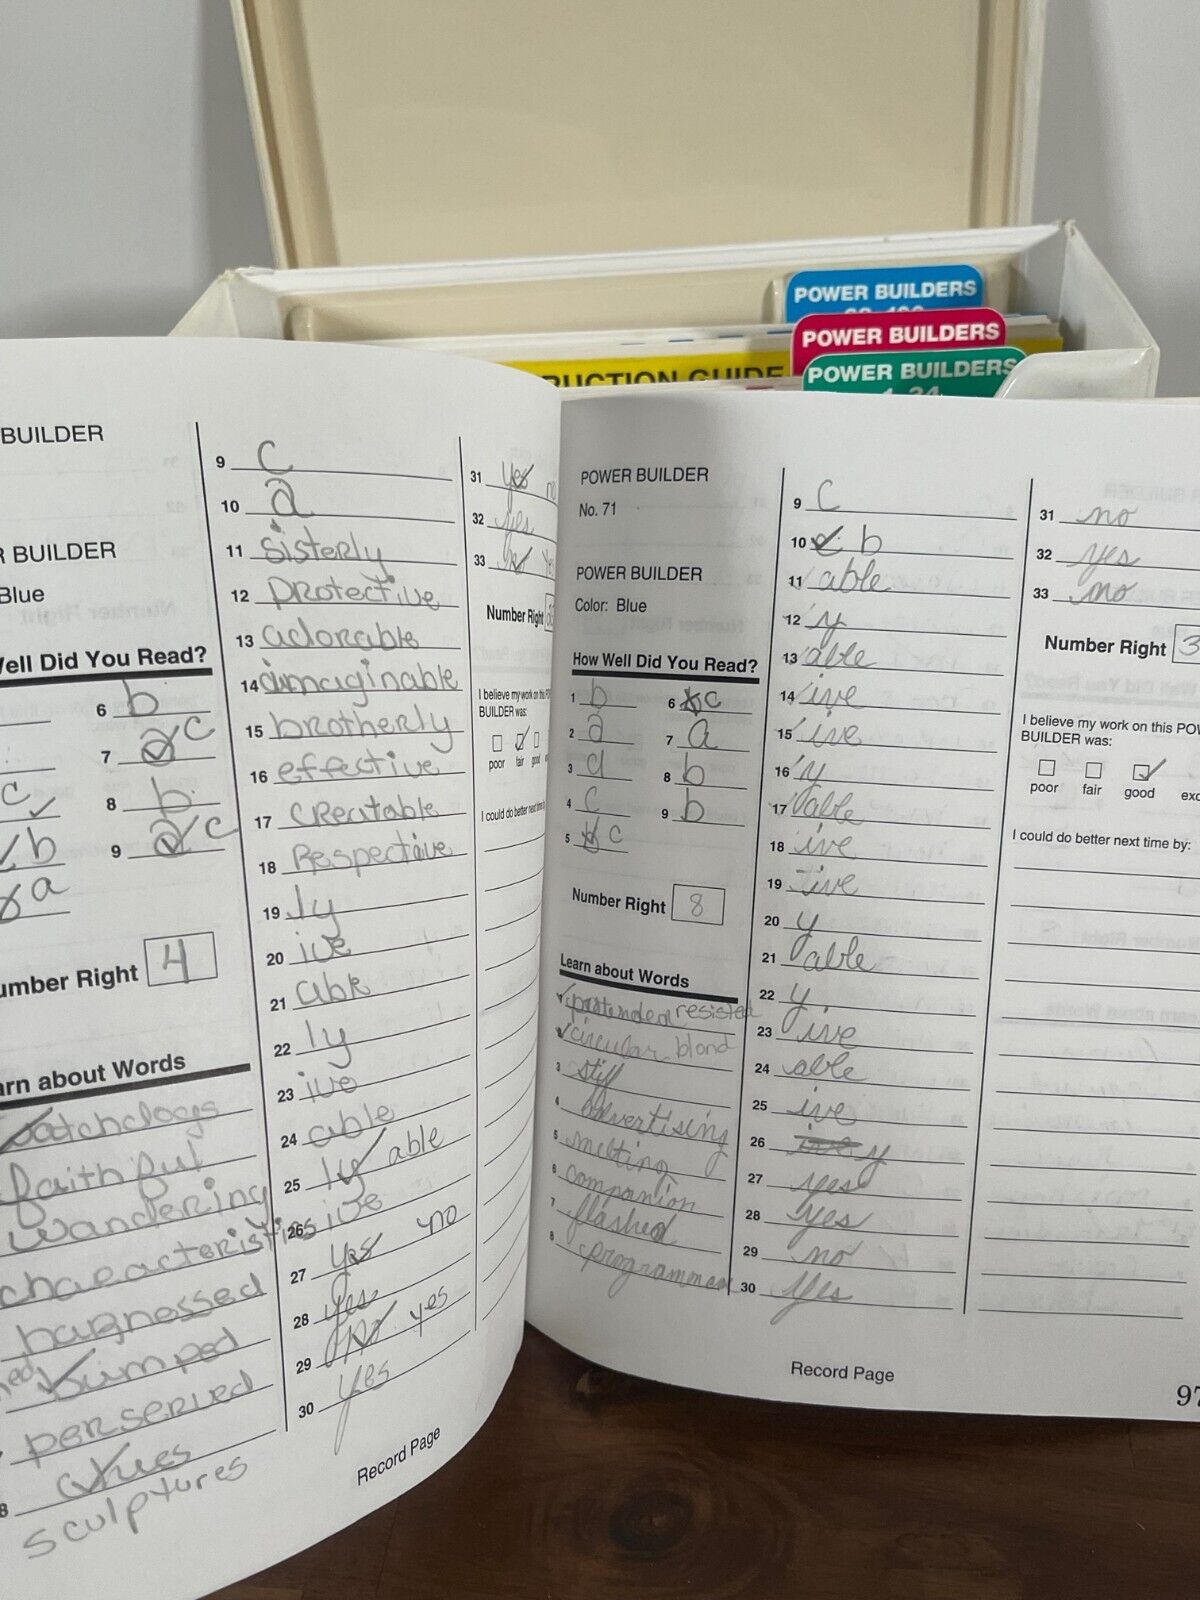 POWER BUILDERS
POWER BUILDERS
POWER BUILDERS
1-34
RUCTION GUIDE
BUILDER
R BUILDER
Blue
Well Did You Read?
6 b
7 a c
8 b
9 a c
c
b
a
Number Right 4
arn about Words
faithful
wandering
characteristics
harnessed
bumped
perserved
8
sculptures
9 c
10 a
11 sisterly
12 protective
13 adorable
14 imaginable
15 brotherly
16 effective
17 creatable
18 Respective
19 ly
20 ive
21 able
22 ly
23 ive
24 able
25 ly able
26 ive
27 yes no
28 yes
29 no yes
30 yes
31 yes no
32 yes
33 no yes
Number Right
I believe my work on this PO
BUILDER was:
poor fair good
I could do better next time
Record Page
POWER BUILDER
No. 71
POWER BUILDER
Color: Blue
How Well Did You Read?
1 b
2 a
3 d
4 c
5 b c
6 b c
7 a
8 b
9 b
Number Right 8
Learn about Words
1 pretended resisted
2 circular blond
3 stiff
4 advertising
5 melting
6 companion
7 flashed
8 programmed
9 c
10 c b
11 able
12 y
13 able
14 ive
15 ive
16 y
17 able
18 ive
19 ive
20 y
21 able
22 y
23 ive
24 able
25 ive
26 ive y
27 yes
28 yes
29 no
30 yes
31 no
32 yes
33 no
Number Right 3
I believe my work on this POW
BUILDER was:
poor fair good exc
I could do better next time by:
Record Page
97